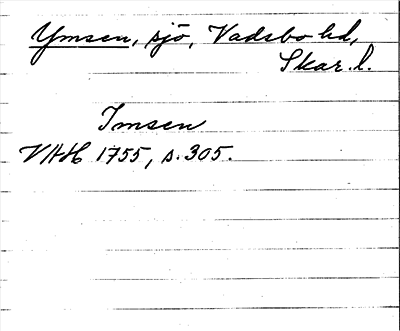 Ymsen, sjö, Vadsbo hd,
Skar. l.
Imsen
VAH 1755, s. 305.